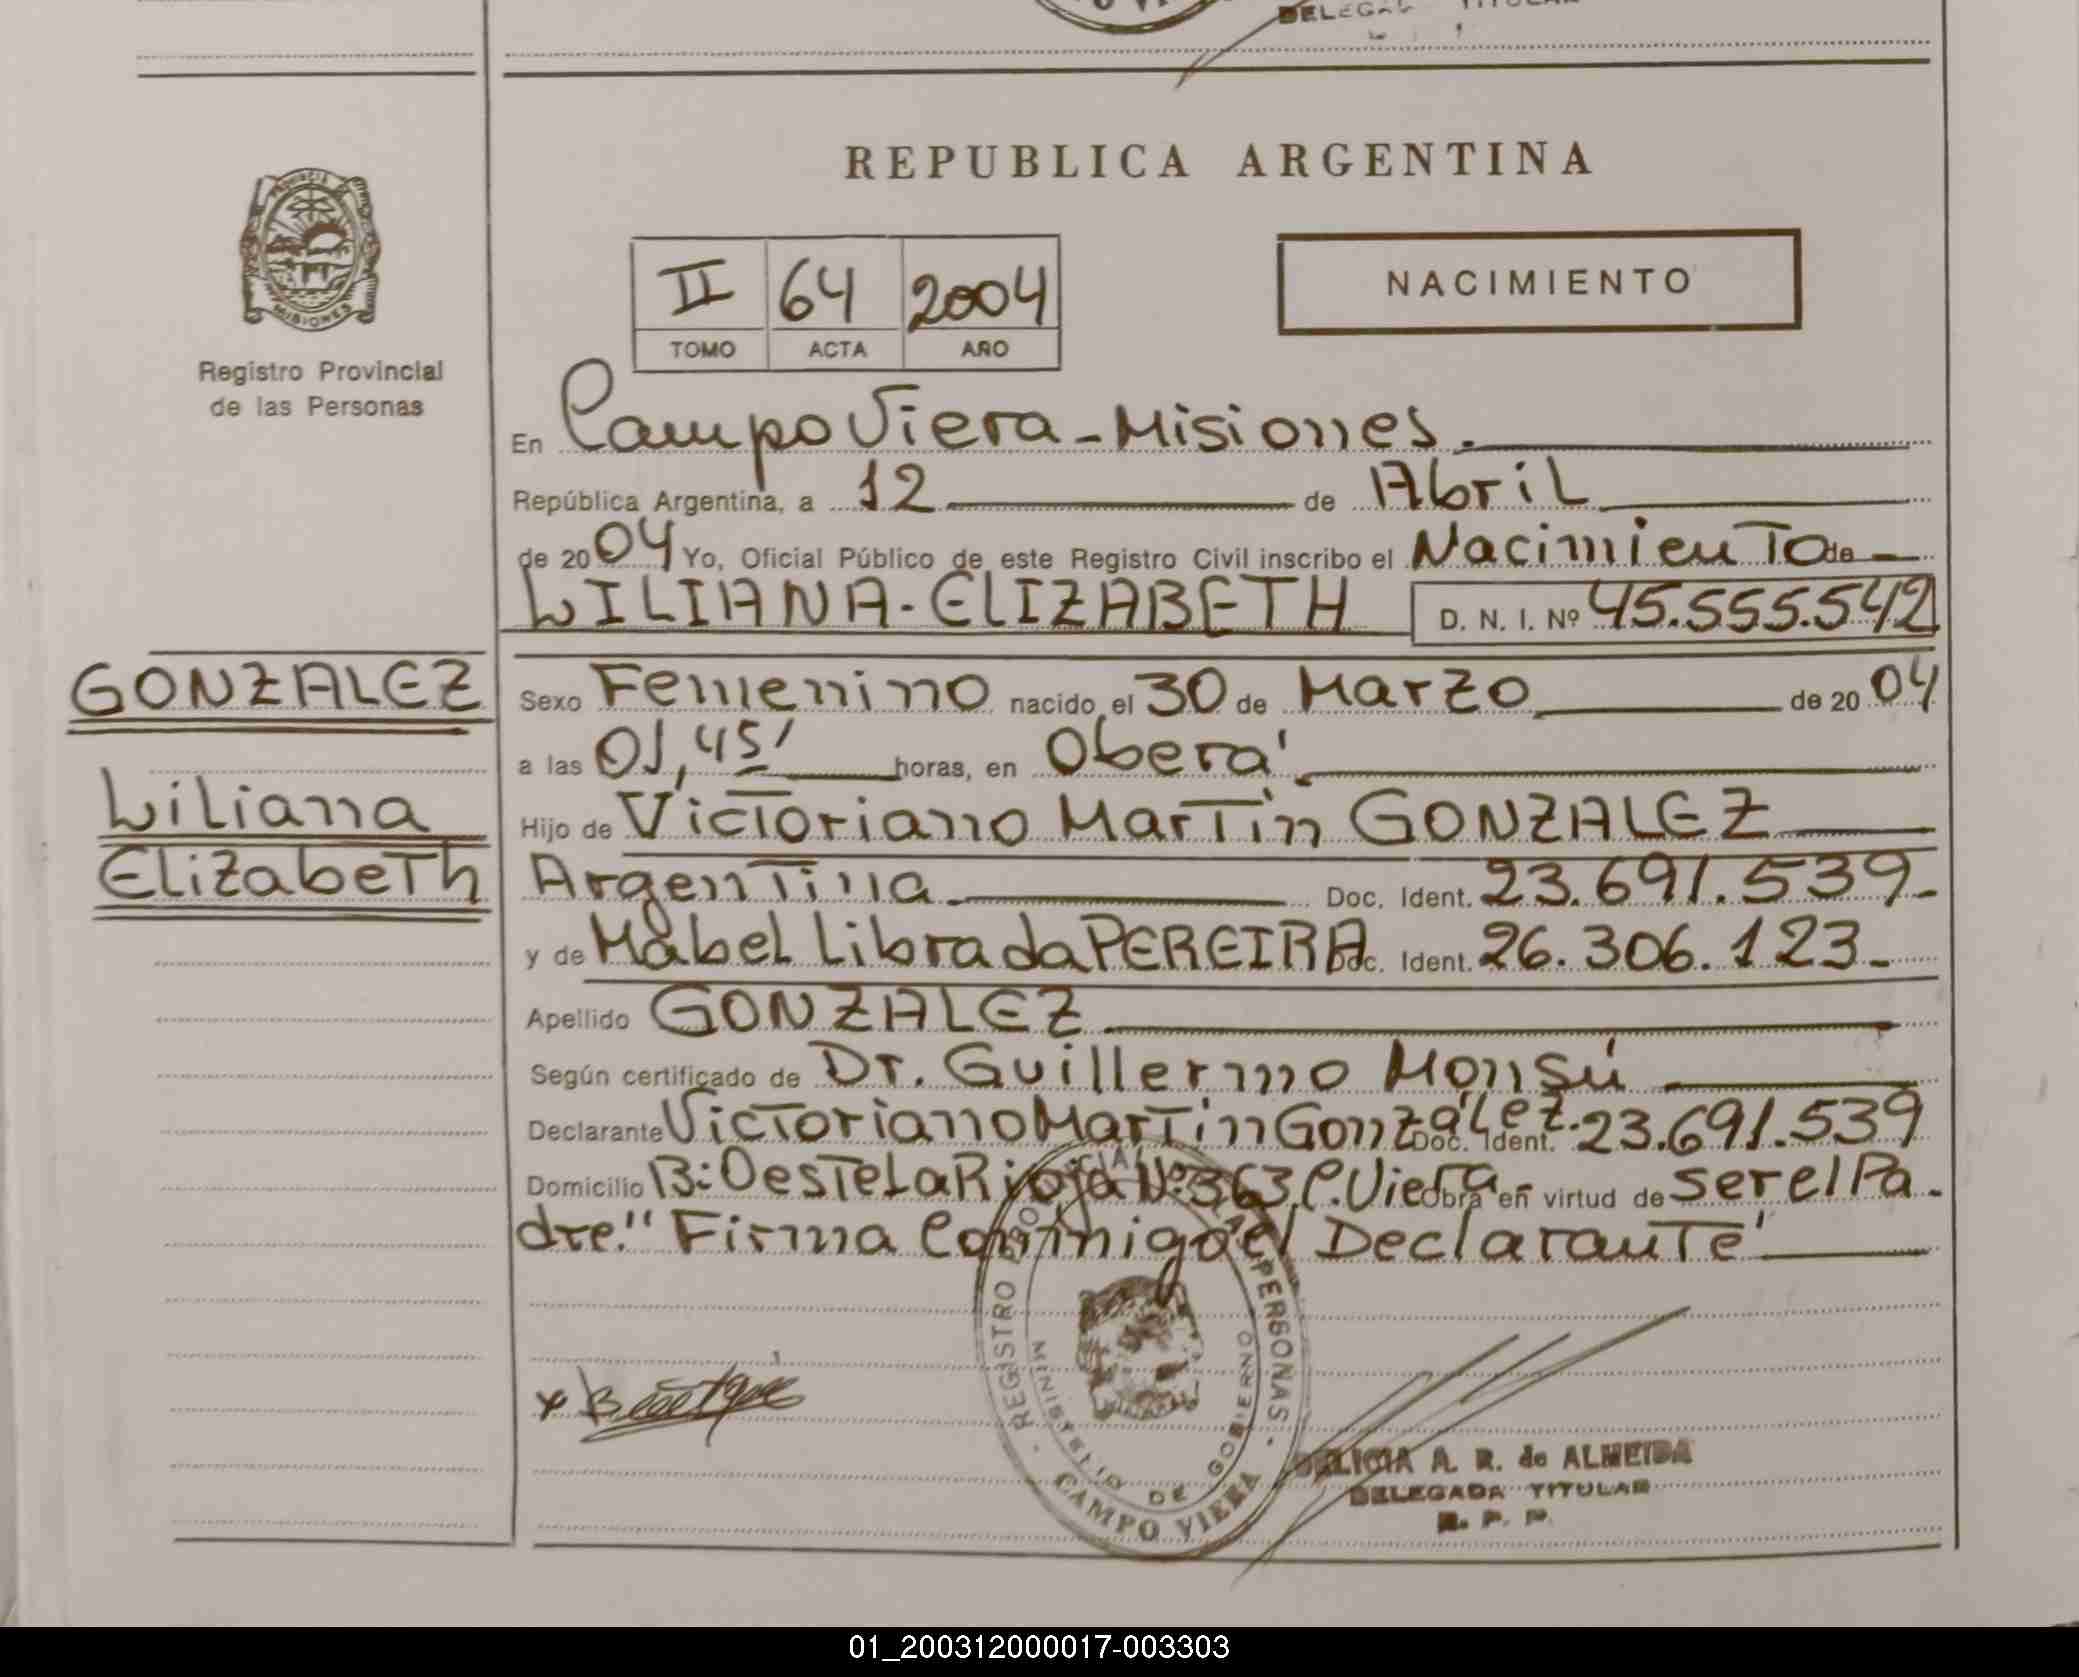 DELEGAD TITULAR
REPUBLICA ARGENTINA
PROVINCIA DE MISIONES
Registro Provincial
de las Personas
II 64 2004
TOMO ACTA AÑO
NACIMIENTO
En Campo Viera - Misiones.
República Argentina, a 12 de Abril
de 2004 Yo, Oficial Público de este Registro Civil inscribo el Nacimiento de
LILIANA - ELIZABETH D. N. I. Nº 45.555.542
GONZALEZ
Liliana
Elizabeth
Sexo Femenino nacido el 30 de Marzo de 2004
a las 01,45' horas, en Oberá
Hijo de Victoriano Martín GONZALEZ
Argentina Doc. Ident. 23.691.539-
y de Mabel Librada PEREIRA Doc. Ident. 26.306.123-
Apellido GONZALEZ
Según certificado de Dr. Guillermo Monsú
Declarante Victoriano Martín González. Doc. Ident. 23.691.539
Domicilio B: Oeste La Rioja Nº 363. C. Viera - obra en virtud de ser el Pa-
dre." Firma Conmigo el Declarante"
REGISTRO PROVINCIAL DE LAS PERSONAS
MINISTERIO DE GOBIERNO
CAMPO VIERA
DELICIA A. R. de ALMEIDA
DELEGADA TITULAR
R. P. P.
01_200312000017-003303